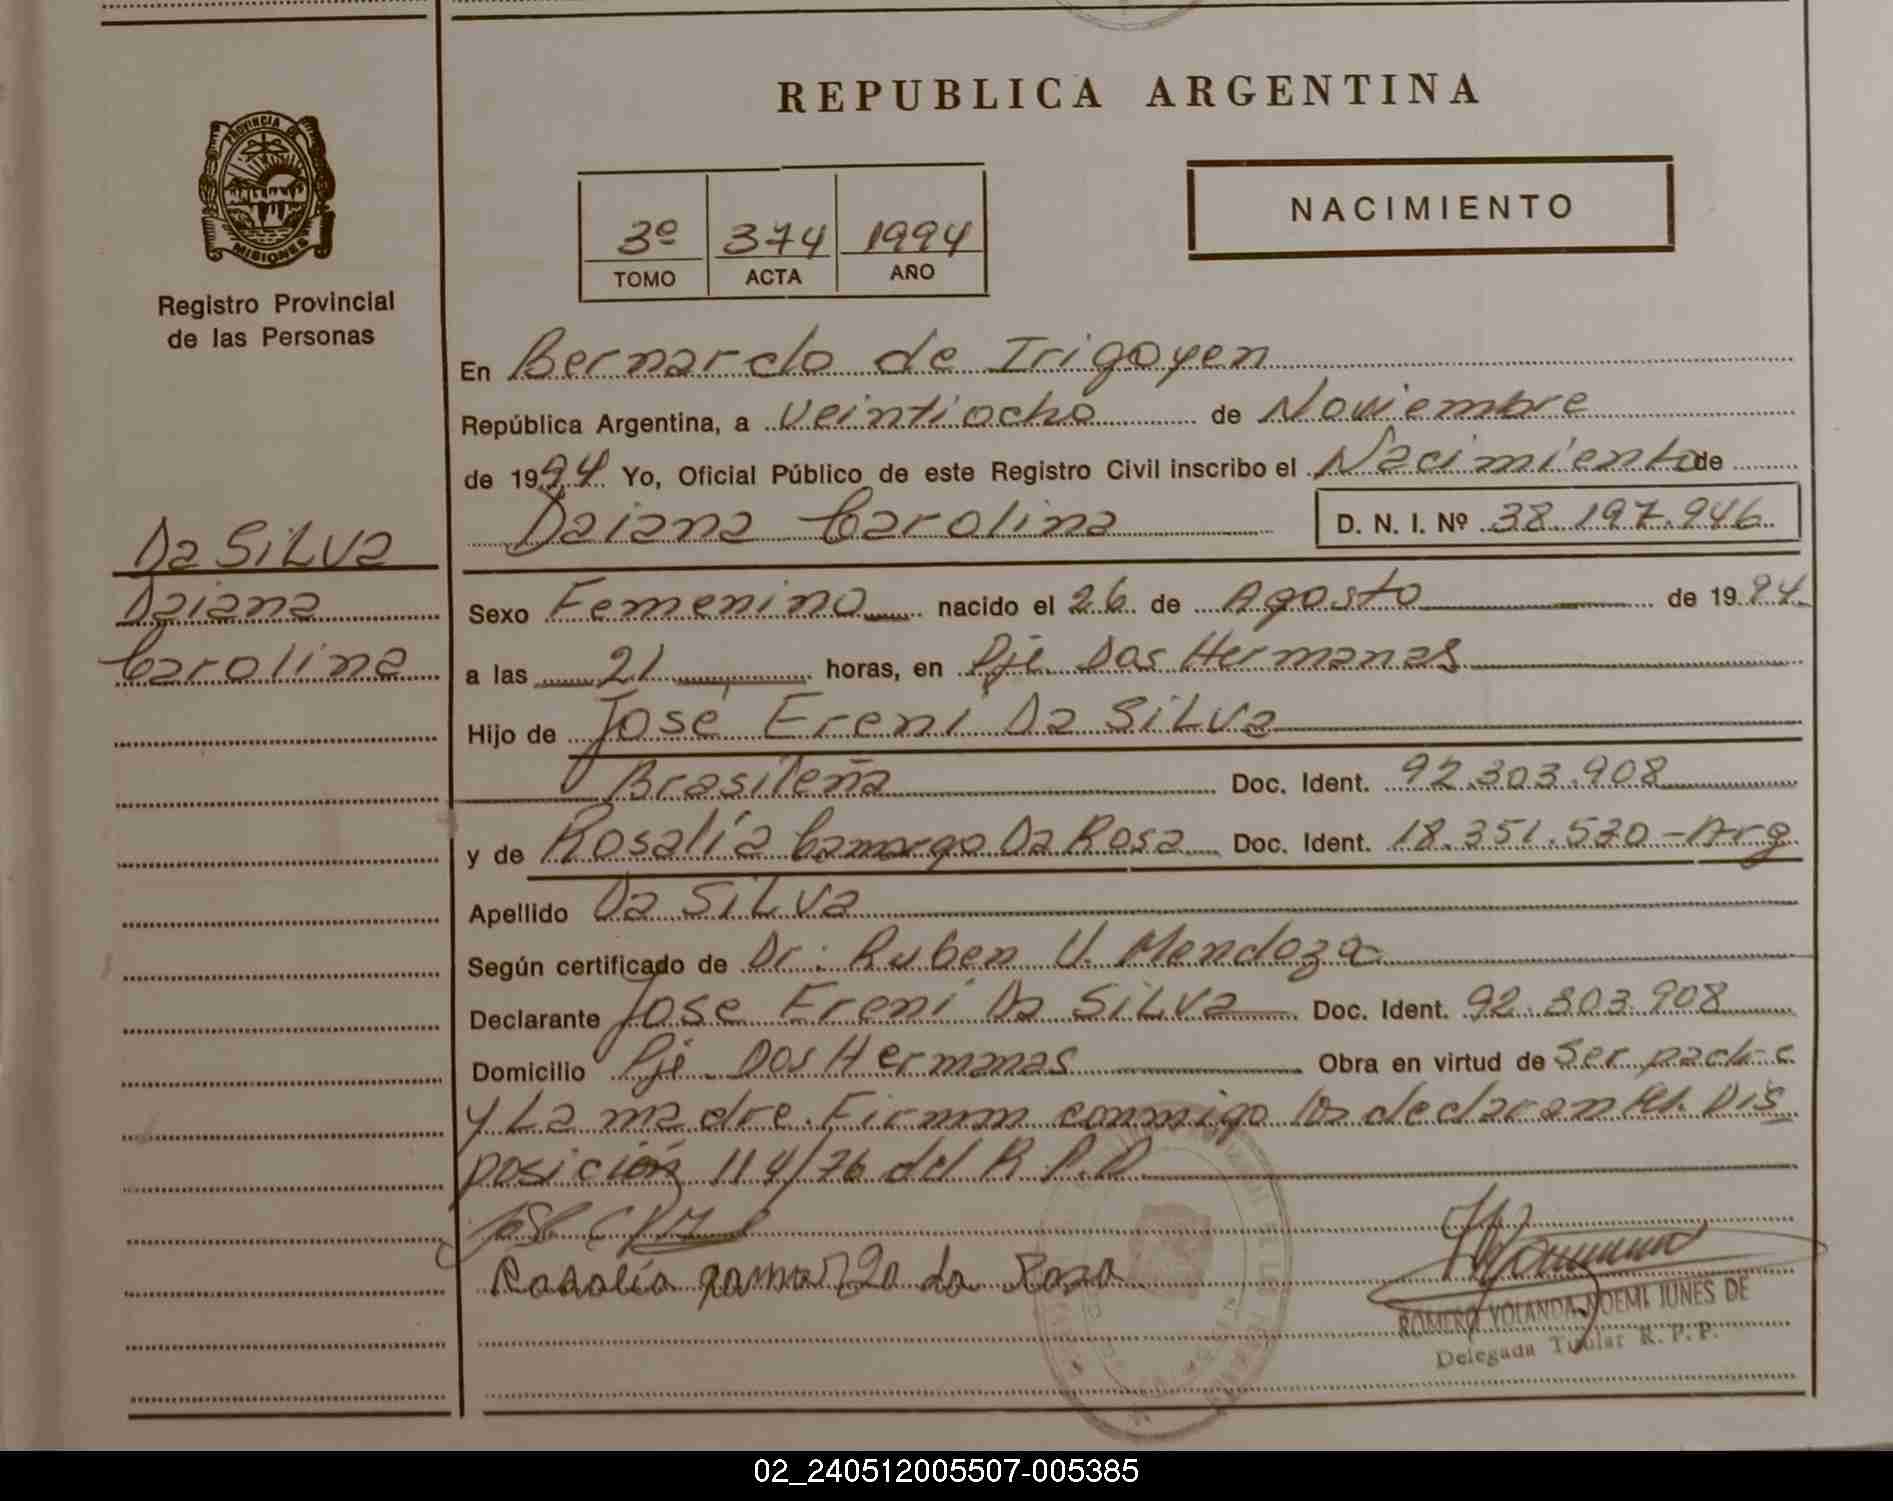 REPUBLICA ARGENTINA
PROVINCIA DE
MISIONES
Registro Provincial
de las Personas
3º 374 1994
TOMO ACTA AÑO
NACIMIENTO
En Bernardo de Irigoyen
República Argentina, a veintiocho de Noviembre
de 1994 Yo, Oficial Público de este Registro Civil inscribo el Nacimiento de
Daiana Carolina D. N. I. Nº 38.197.946
Da SiLVa
Daiana
Carolina
Sexo Femenino nacido el 26 de Agosto de 1994
a las 21 horas, en Pje Dos Hermanas
Hijo de José Ereni Da SiLVa
Brasileña Doc. Ident. 92.303.908
y de Rosalía Camargo Da Rosa Doc. Ident. 18.351.530 - Arg
Apellido Da SiLVa
Según certificado de Dr: Ruben U. Mendoza
Declarante Jose Ereni Da SiLVa Doc. Ident. 92.303.908
Domicilio Pje. Dos Hermanas Obra en virtud de Ser padre
y La madre. Firman conmigo los declaran Dis
posición 114/76 del R.P.P.
Rosalía gamargo da Rosa
ROMERO YOLANDA NOEMI JUNES DE
Delegada Titular R. P. P.
02_240512005507-005385